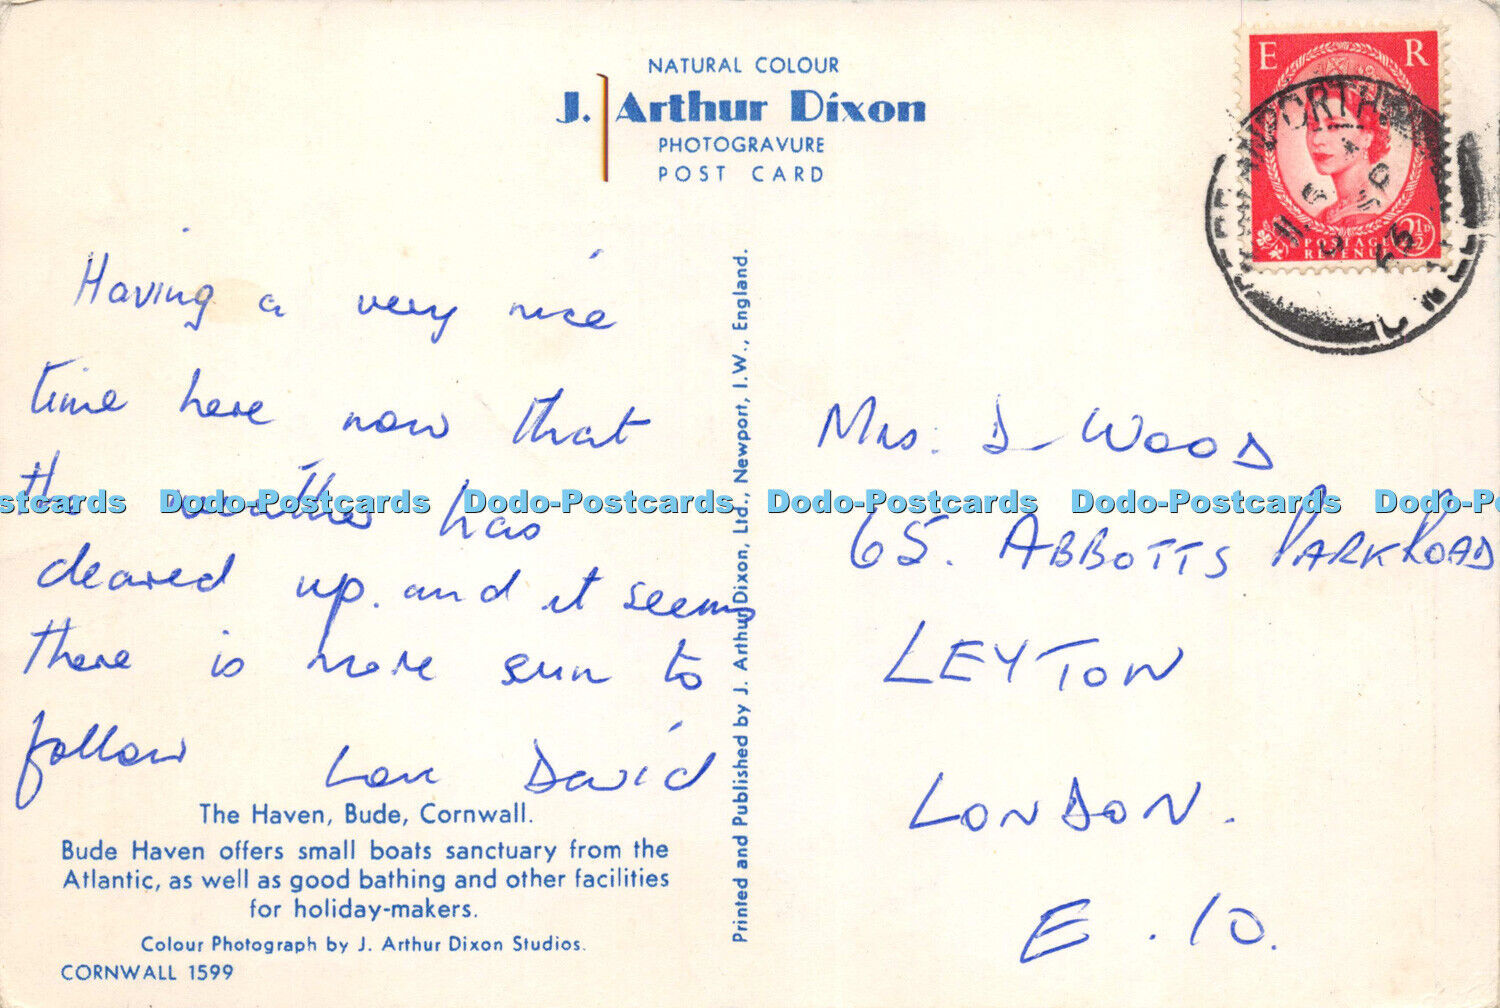 NATURAL COLOUR
J. Arthur Dixon
PHOTOGRAVURE
POST CARD
E R
POSTAGE
REVENUE
2½D
Having a very nice
time here now that
the weather has
cleared up. and it seems
there is more sun to
follow Love David
The Haven, Bude, Cornwall.
Bude Haven offers small boats sanctuary from the
Atlantic, as well as good bathing and other facilities
for holiday-makers.
Colour Photograph by J. Arthur Dixon Studios.
CORNWALL 1599
Printed and Published by J. Arthur Dixon, Ltd., Newport, I.W., England.
Mrs. D Wood
65. ABBOTTS PARK ROAD
LEYTON
LONDON.
E.10.
Dodo-Postcards Dodo-Postcards Dodo-Postcards Dodo-Postcards